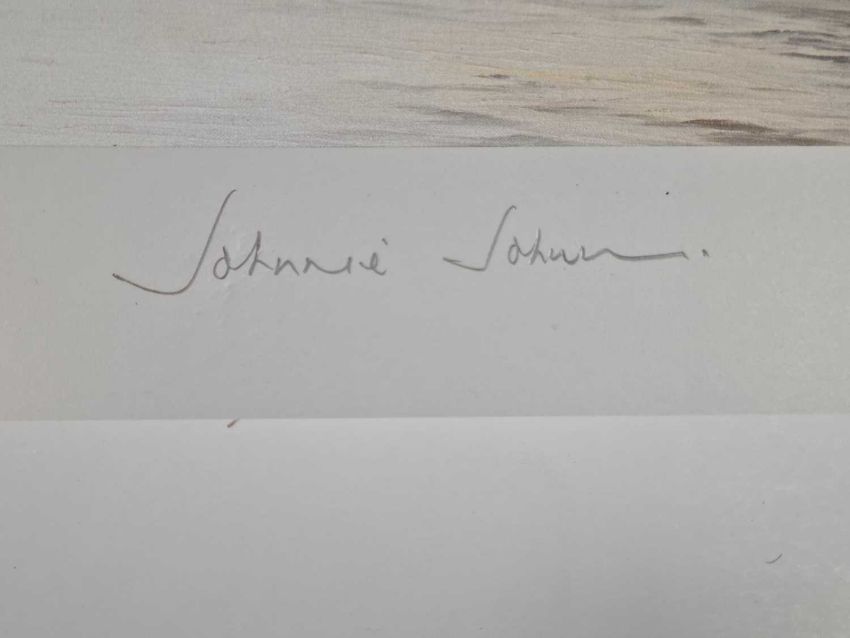 Johnnie Johnson.